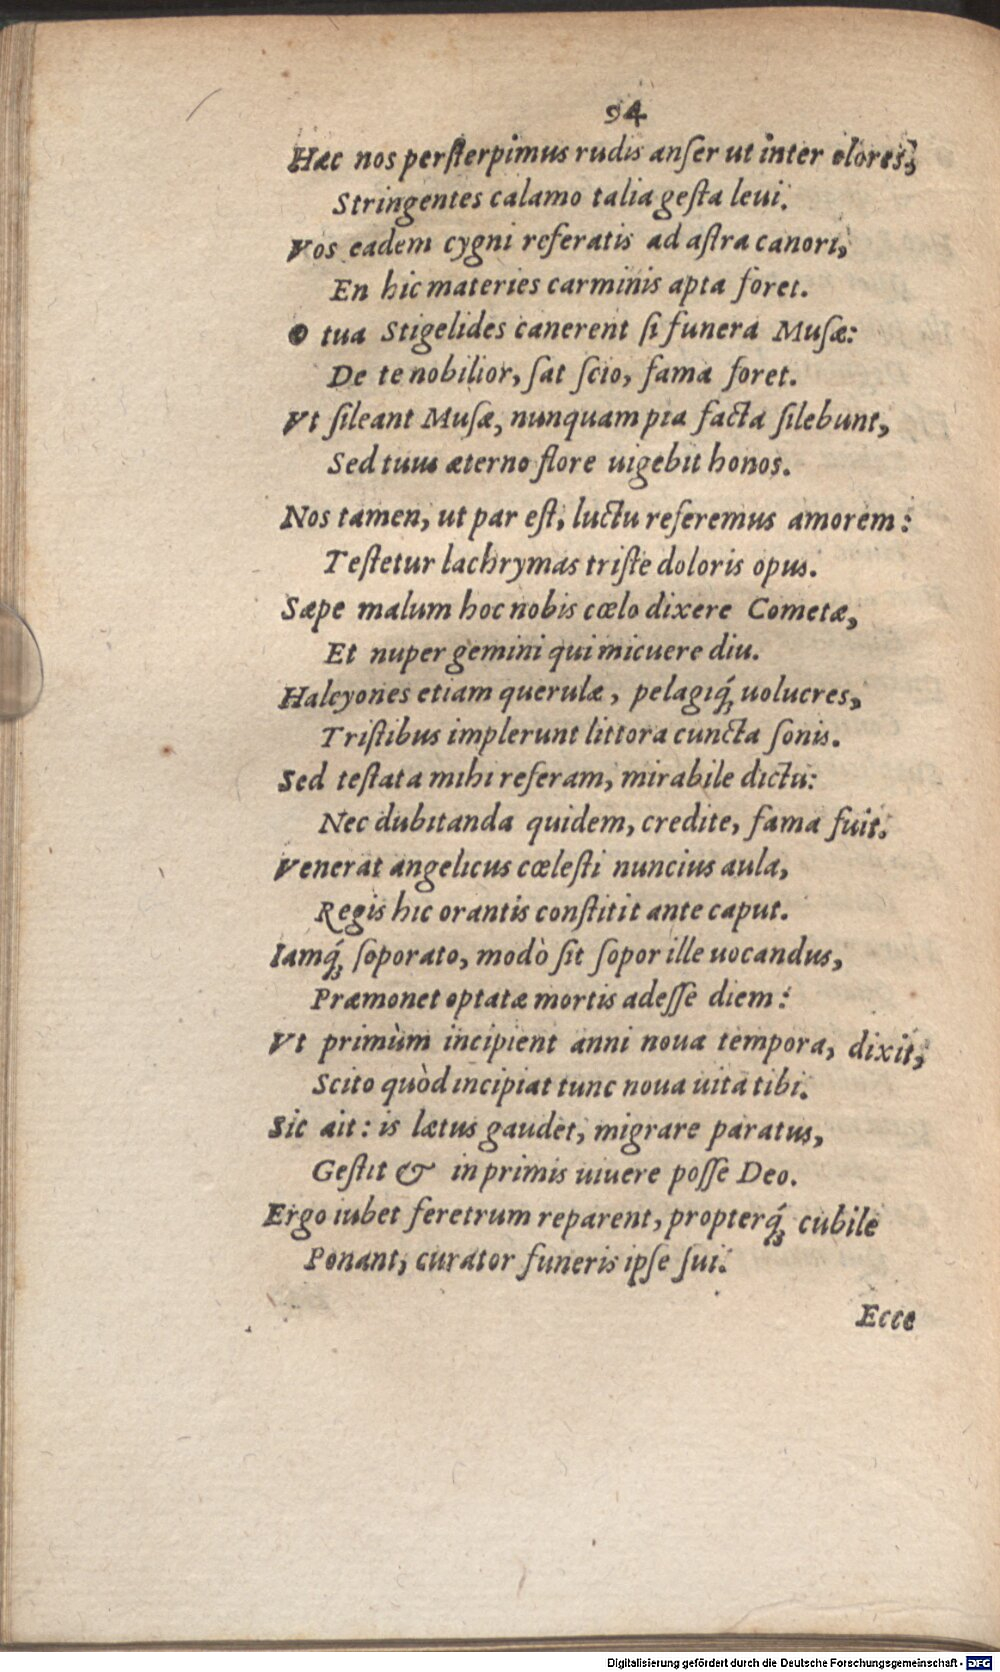 94
Hæc nos perſterpimus rudis anſer ut inter olores,
Stringentes calamo talia geſta leui.
Vos eadem cygni referatis ad aſtra canori,
En hic materies carminis apta foret.
O tua Stigelides canerent ſi funera Muſæ:
De te nobilior, ſat ſcio, fama foret.
Vt ſileant Muſæ, nunquam pia facta ſilebunt,
Sed tuus æterno flore uigebit honos.
Nos tamen, ut par eſt, luctu referemus amorem:
Teſtetur lachrymas triſte doloris opus.
Sæpe malum hoc nobis cœlo dixere Cometæ,
Et nuper gemini qui micuere diu.
Halcyones etiam querulæ, pelagiq́ꝫ uolucres,
Triſtibus implerunt littora cuncta ſonis.
Sed teſtata mihi referam, mirabile dictu:
Nec dubitanda quidem, credite, fama fuit.
Venerat angelicus cœleſti nuncius aula,
Regis hic orantis conſtitit ante caput.
Iamq́ꝫ ſoporato, modò ſit ſopor ille uocandus,
Præmonet optatæ mortis adeſſe diem:
Vt primùm incipient anni noua tempora, dixit,
Scito quòd incipiat tunc noua uita tibi.
Sic ait: is lætus gaudet, migrare paratus,
Geſtit & in primis uiuere poſſe Deo.
Ergo iubet feretrum reparent, propterq́ꝫ cubile
Ponant, curator funeris ipſe ſui.
Ecce
Digitalisierung gefördert durch die Deutsche Forschungsgemeinschaft - DFG